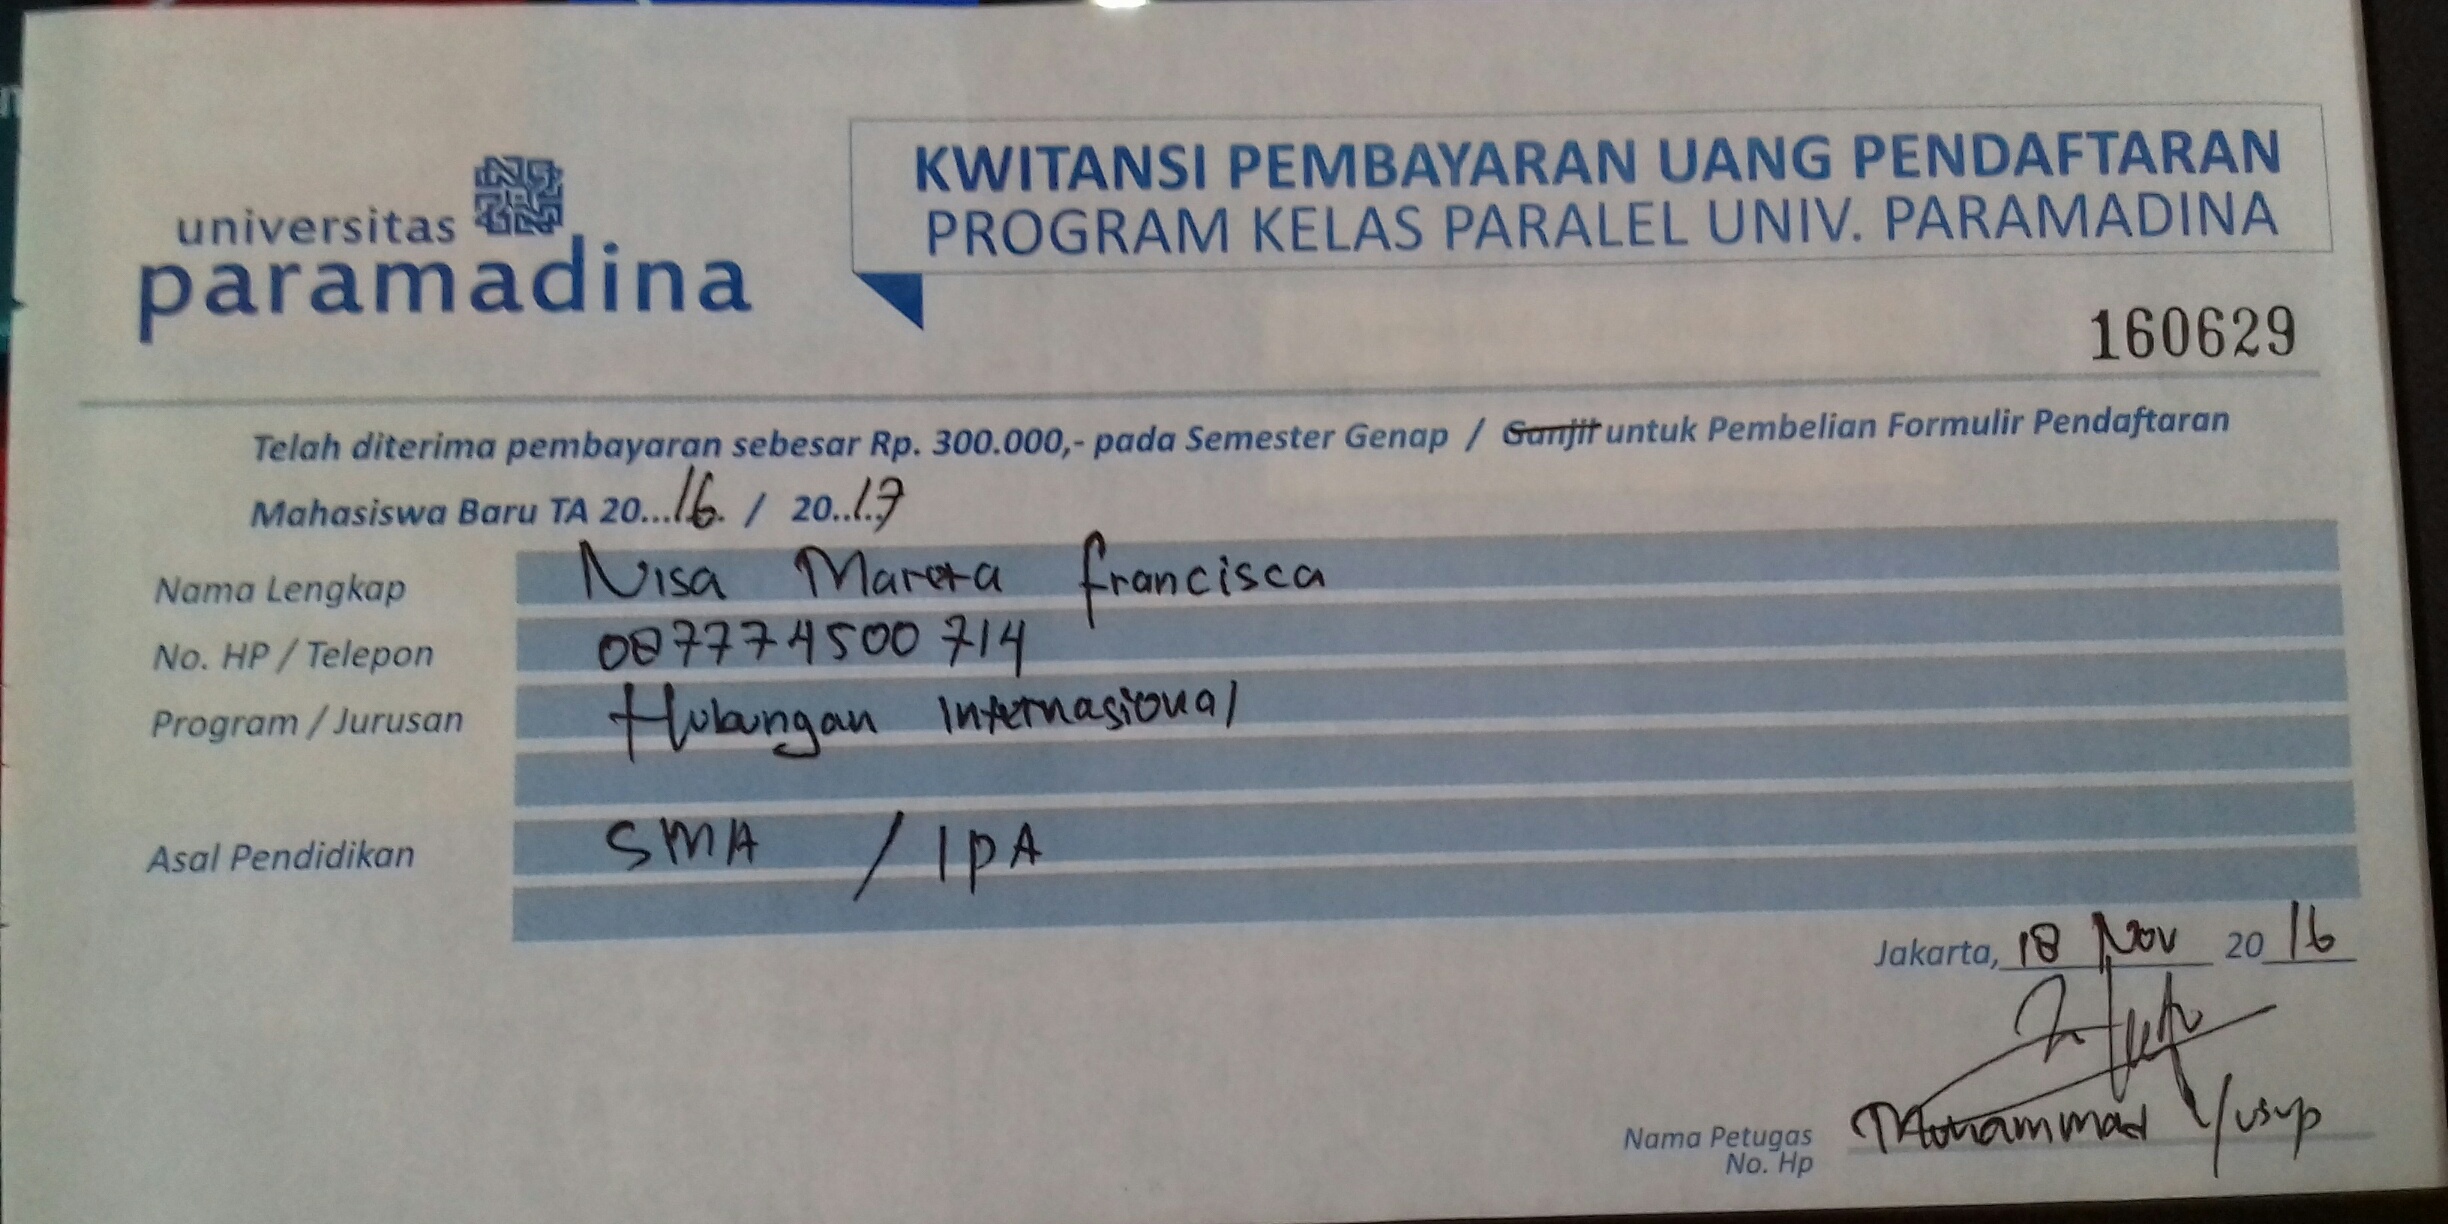 universitas
paramadina
KWITANSI PEMBAYARAN UANG PENDAFTARAN
PROGRAM KELAS PARALEL UNIV. PARAMADINA
160629
Telah diterima pembayaran sebesar Rp. 300.000,- pada Semester Genap / Ganjil untuk Pembelian Formulir Pendaftaran
Mahasiswa Baru TA 20...16. / 20..17
Nama Lengkap Nisa Francisca
No. HP / Telepon 087774500714
Program / Jurusan Hubungan Internasional
Asal Pendidikan SMA / IPA
Jakarta, 18 Nov 20 16
Nama Petugas Muhammad Yusup
No. Hp